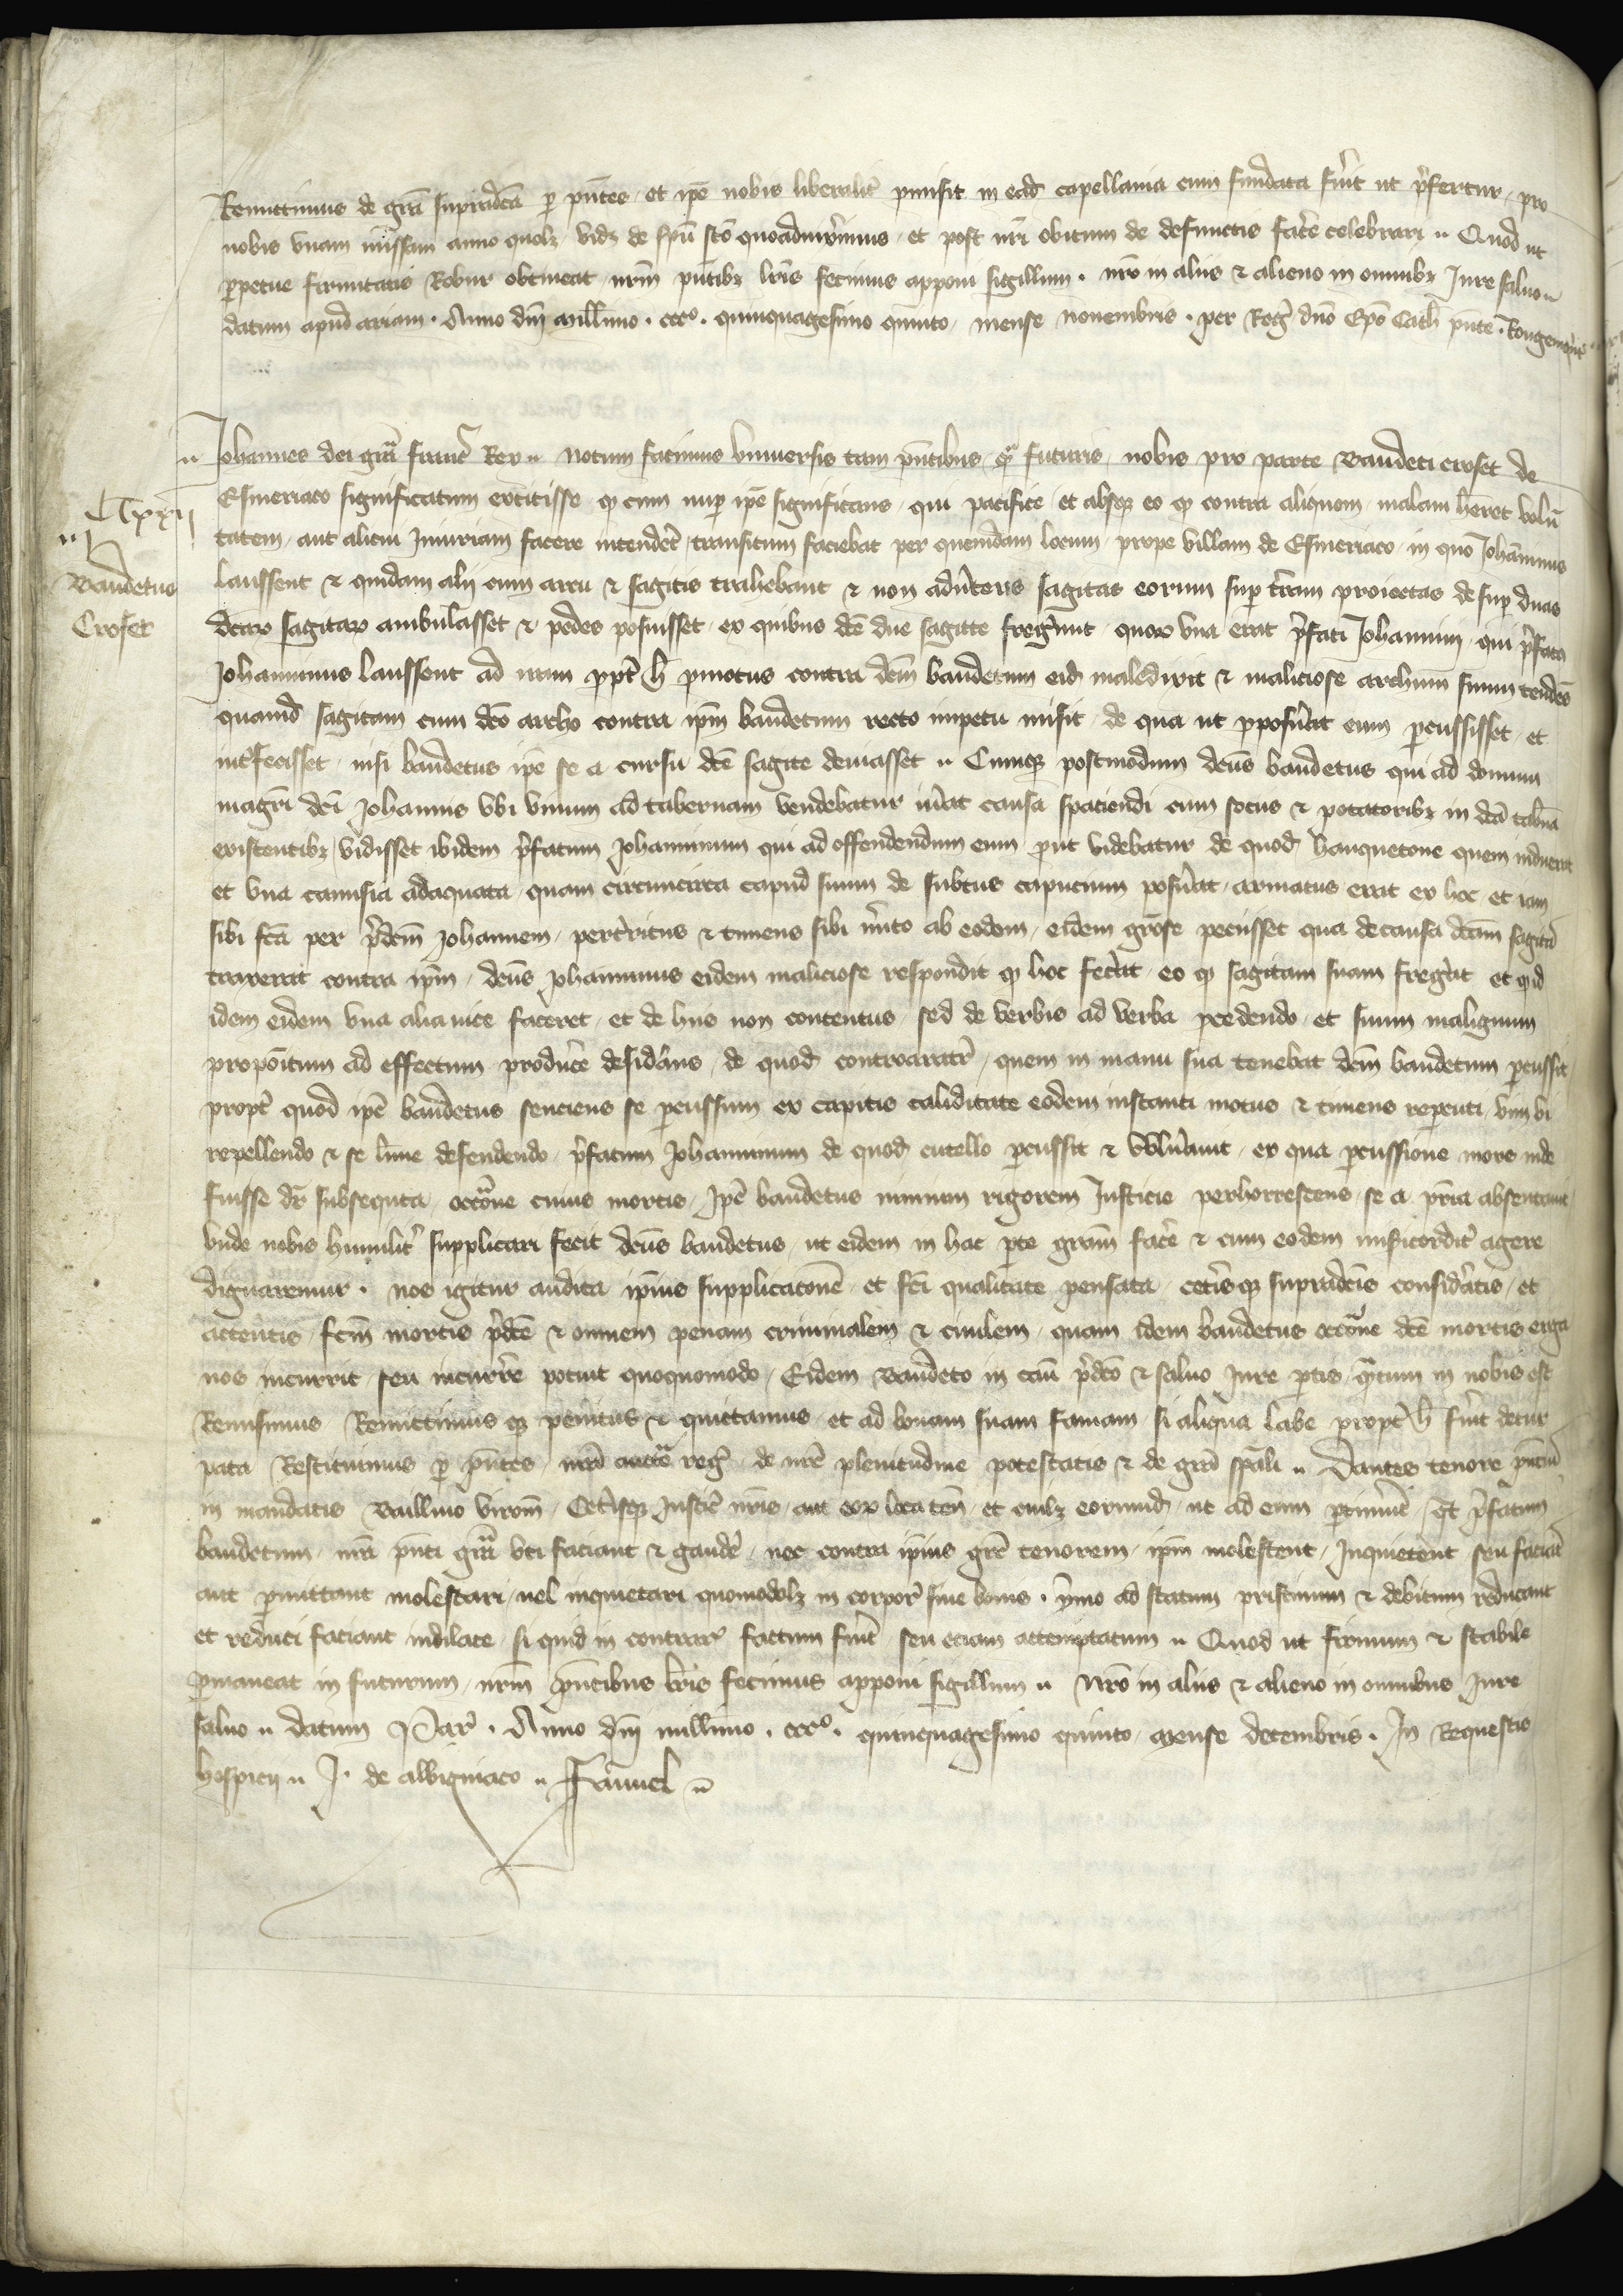 Remittimus de grã supradcã p pntes et ipe nobis liberalit pmisit in ead capellania cum fundata fuit ut pfertur pro
nobis unam missam anno quolz vidz de spu sco quoadvixerimus et post nri obitum de defunctis facere celebrari Quod ut
perpetue firmitatis Robur obtineat nrm pntibz lris fecimus apponi sigillum . nro in aliis & alieno in omnibz Jure salvo
datum apud ariam . Anno dni millimo . ccco . quinquagesimo quinto mense novembris . per Regem dno Epo Cath pnte . Rougemont
Johannes dei gra franc Rex notum facimus universis tam pntibus q futuris nobis pro parte Baudeti croset de
Esmeriaco significatum extitisse q cum nup ipe significans qui pacifice et absqz eo q contra aliquem malam heret volun
tatem aut alicui Iniuriam facere intenderet transitum faciebat per quemdam locum prope villam de Esmeriaco in quo Johanninus
laussent & quidam alij cum arcu & sagitis trahebant & non advertens sagitas eorum sup terram proiectas desup duas
dcarum sagitarum ambulasset & pedes posuisset ex quibus dce due sagitte fregerunt quorum una erat pfati Johannini qui pfatus
Johanninus laussent ad iram ppt h pmotus contra dcm baudetum eid maledixit & maliciose archum suum tendens
quamd sagitam cum dco archo contra ipm baudetum recto impetu misit de qua ut pposuerat eum percussisset et
interfecisset nisi baudetus ipe se a cursu dce sagite deviasset Cumqz postmodum dcus baudetus qui ad domum
magri dci Johannis ubi vinum ad tabernam vendebatur iverat causa spaciendi cum sociis & potatoribz in dca tabna
existentibz vidisset ibidem pfatum Johanninum qui ad offendendum eum put videbatur de quod hauquetone quem induerat
et una camisia adaquata quam circumcirca capud suum de subtus capucium posuerat armatus erat ex hoc et iam
sibi fca per pdcm Johannem perterritus & timens sibi merito ab eodem eidem grose peciisset qua de causa dcam sagitam
traxerat contra ipm dcus Johanninus eidem maliciose respondit q hoc fecerat eo q sagitam suam fregerat et qid
idem eidem una alia vice faceret et de hiis non contentus sed de verbis ad verba pcedendo et suum malignum
propoitum ad effectum producere desiderans de quod quem in manu sua tenebat dcm baudetum percussit
propt quod ipe baudetus senciens se percussum ex capitis caliditate eodem instanti motus & timens reperciti vim vi
repellendo & se lime defendendo pfatum Johanninum de quod cutello percussit & vulneravit ex qua percussione mors inde
fuisse dr subsequta occone cuius mortis Ipe baudetus nimium rigorem Justicie perhorrescens se a pria absentavit
unde nobis humilit supplicari fecit dcus baudetus ut eidem in hac pte gram facere & cum eodem misicordit agere
dignaremur . nos igitur audita ipius supplicatone et fci qualitate pensata cetisqz supradcis considatis et
attentis fcm mortis pdce & omnem penam criminalem & civilem quam idem baudetus occone dce mortis erga
nos incurrit seu incurrere potuit quoquomodo Eidem Baudeto in cau pdco & salvo Jure ptis qtum in nobis est
Remisimus Remittimus qz penitus & quietamus et ad bonam suam famam si aliqua labe propt h fuit detur
pata Restituimus p pntes nra auctte reg de nre plenitudine potestatis & de gra spali Dantes tenore pntium
in mandatis Baillivo virom Cetisqz Justic nris aut eor loca ten et cuilz eorumd ut ad eum ptinuit Qt pfatum
baudetum nra pnti gra uti faciant & gaudere nec contra ipius gre tenorem ipm molestent Inquietent seu faciant
aut permittant molestari vel inquietari quomodolz in corpore sive bonis . ymo ad statum pristinum & debitum reducant
et reduci faciant indilate si quid in contrar factum fuit seu eciam attemptatum Quod ut firmum & stabile
permaneat in futurum nrm pntibus lris fecimus apponi sigillum Nro in aliis & alieno in omnibus Jure
salvo datum Par . Anno dni millimo . ccco . quinquagesimo quinto mense decembris . In Requestis
hospicij J . de albigniaco Fauvel
Baudetus
Croset